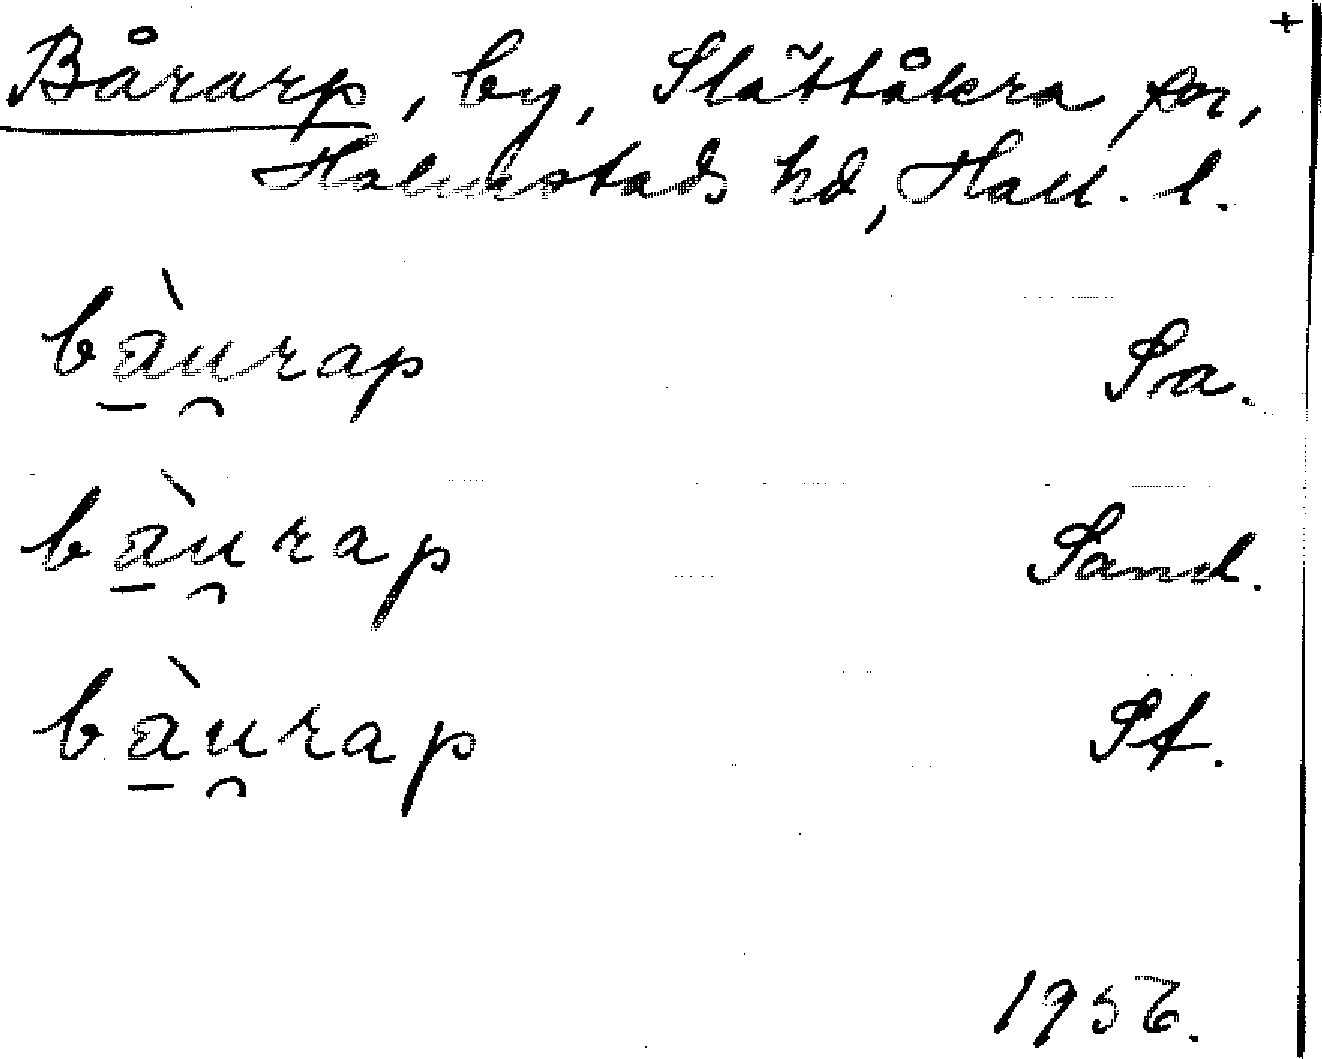 +
Bårarp, by, Slättåkra sn,
Halmstads hd, Hall. l.
bà̱u̯rap Sa.
bà̱u̯rap Sand.
bà̱u̯rap Sf.
1956.